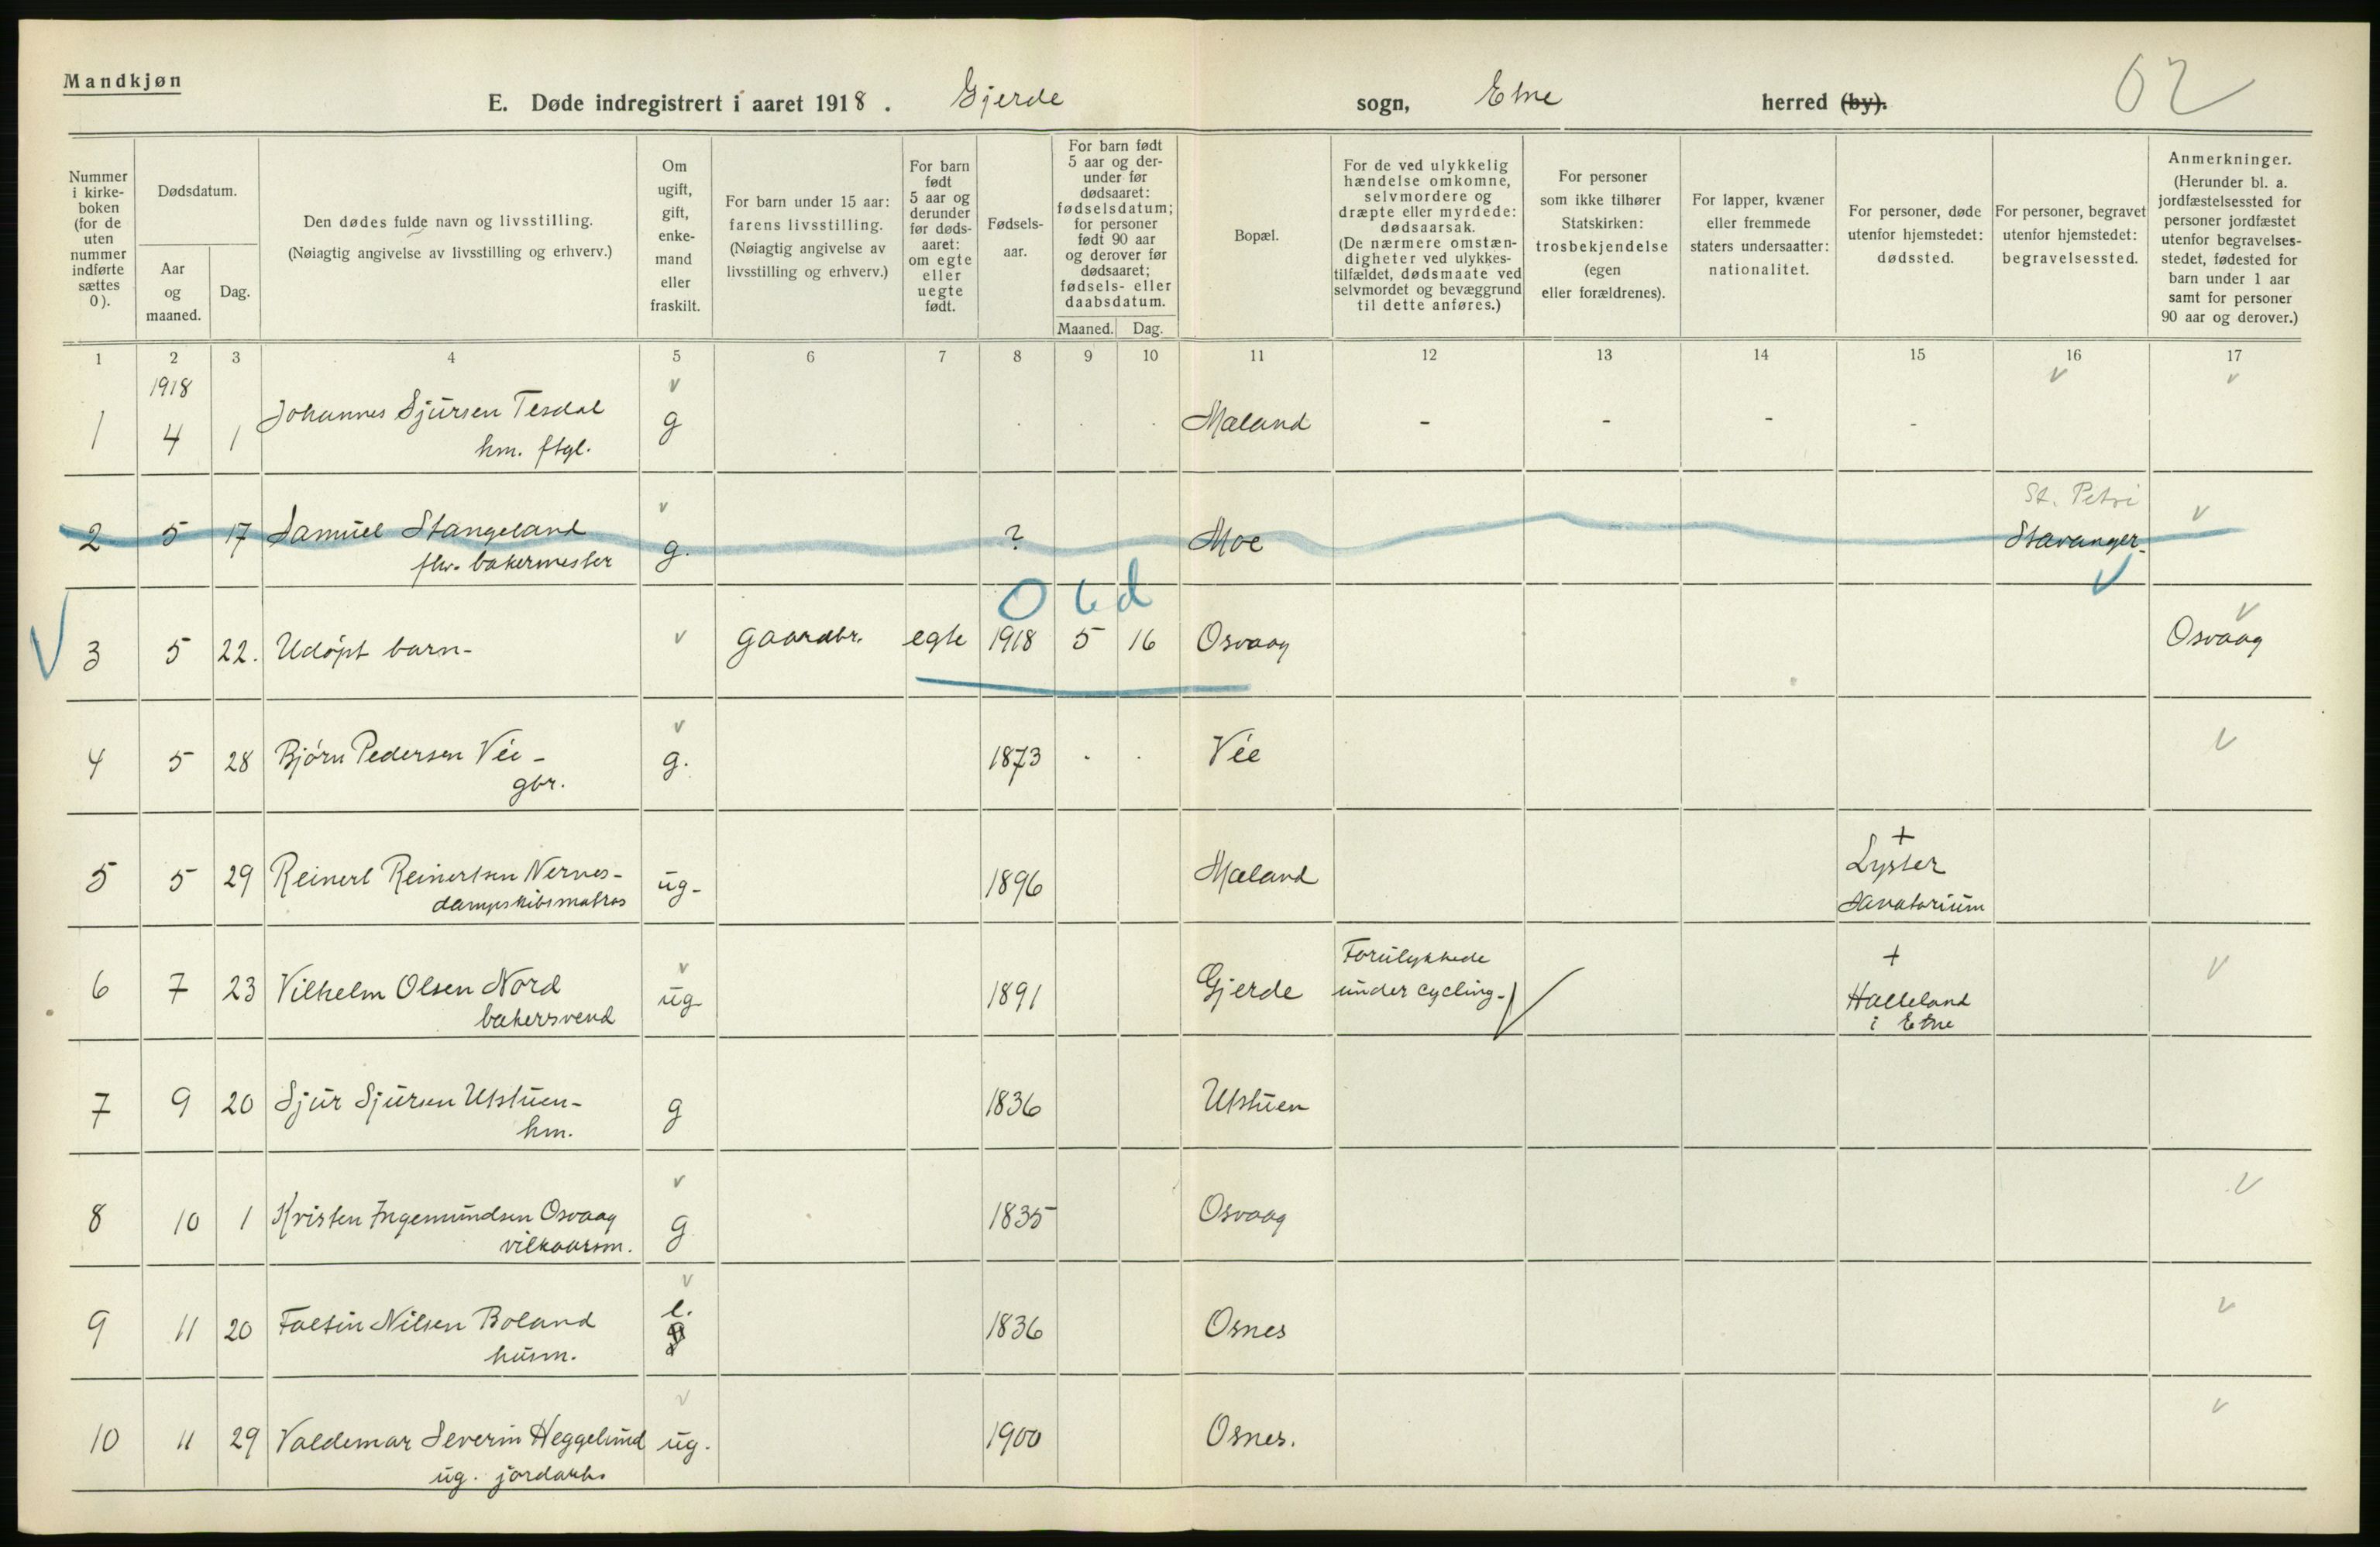 Mandkjøn
E. Døde indregistrert i aaret 1918. Gjerde sogn, Etne herred (by).
62
Nummer i kirkeboken (for de uten nummer indførte sættes 0).
Dødsdatum.
Aar og maaned.
Dag.
Den dødes fulde navn og livsstilling.
(Nøiagtig angivelse av livsstilling og erhverv.)
Om ugift, gift, enkemand eller fraskilt.
For barn under 15 aar: farens livsstilling.
(Nøiagtig angivelse av livsstilling og erhverv.)
For barn født 5 aar og derunder før dødsaaret: om egte eller uegte født.
Fødselsaar.
For barn født 5 aar og derunder før dødsaaret: fødselsdatum; for personer født 90 aar og derover før dødsaaret; fødsels- eller daabsdatum.
Maaned.
Dag.
Bopæl.
For de ved ulykkelig hændelse omkomne, selvmordere og dræpte eller myrdede: dødsaarsak.
(De nærmere omstændigheter ved ulykkestilfældet, dødsmaate ved selvmordet og bevæggrund til dette anføres.)
For personer som ikke tilhører Statskirken: trosbekjendelse (egen eller forældrenes).
For lapper, kvæner eller fremmede staters undersaatter: nationalitet.
For personer, døde utenfor hjemstedet: dødssted.
For personer, begravet utenfor hjemstedet: begravelsessted.
Anmerkninger.
(Herunder bl. a. jordfæstelsessted for personer jordfæstet utenfor begravelsesstedet, fødested for barn under 1 aar samt for personer 90 aar og derover.)
1 2 3 4 5 6 7 8 9 10 11 12 13 14 15 16 17
1918
1 4 1 Johannes Sjursen Tesdal g Mæland - - - -
hm. ftgl.
St. Petri
2 5 17 Samuel Stangeland g. ? Moe Stavanger.
fhv. bakermester
0 6 d
3 5 22. Udøpt barn- gaardbr. egte 1918 5 16 Osvaag Osvaag
4 5 28 Bjørn Pedersen Vée - g. 1873 Vée
gbr.
5 5 29 Reinert Reinertsen Nernes- ug- 1896 Mæland + Lyster
dampskibsmatros Sanatorium
6 7 23 Vilhelm Olsen Nord ug- 1891 Gjerde Forulykkede under cycling- + Halleland
bakersvend i Etne
7 9 20 Sjur Sjursen Utstuen- g 1836 Utstuen
hm.
8 10 1 Kristen Ingemundsen Osvaag g 1835 Osvaag
vilkaarsm.
9 11 20 Faltin Nilsen Boland e. 1836 Osnes
husm.
10 11 29 Valdemar Severin Heggelund ug. 1900 Osnes.
ug. jordarb.